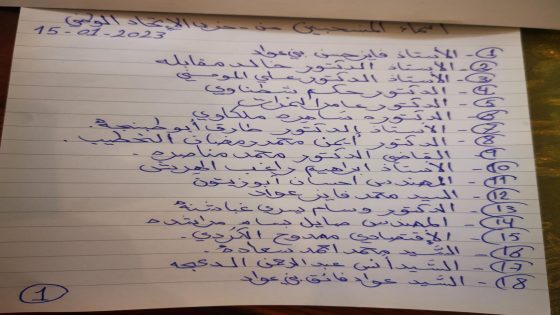 أسماء المنسحبين من حزب الإتحاد الوطني
15-01-2023
1- الأستاذ فايز حسن بني عواد
2- الأستاذ الدكتور خالد مقابله
3- الأستاذ الدكتور علي المومني
4- الدكتور حكم شطناوي
5- الدكتور عامر
6- الدكتوره سميره ملكاوي
7- الاستاذ الدكتور طارق أبو طبنجة.
8- الدكتور أيمن محمد رمضان الخطيب.
9- القاضي الدكتور محمد مناصره.
10- الأستاذ ابراهيم راغب
11- المهندس إحسان أبو زيتون
12- السيد محمد فايز عواد
13- الدكتور وسام يسري عبابنة
14- المهندس صايل بسام مراشده
15- الأقتصادي ممدوح الكردي.
16- السيد محمد احمد سعاده.
17- السيد أنس عبد الرحمن الدعجه
18- السيد عواد فائق بني عواد
1